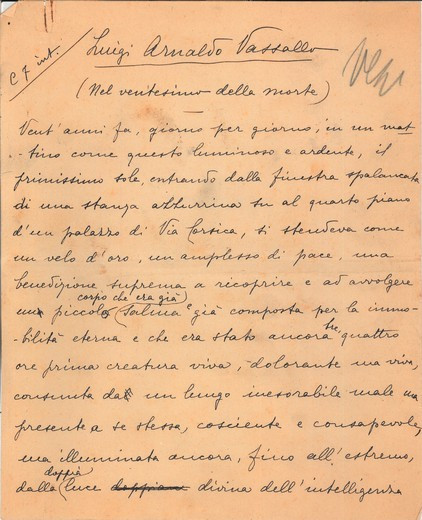 C 7 int.
Luigi Arnaldo Vassallo
(Nel ventesimo della morte)
Vent'anni fa, giorno per giorno, in un mat-
-tino come questo luminoso e ardente, il
primissimo sole, entrando dalla finestra spalancata
di una stanza azzurrina su al quarto piano
d'un palazzo di Via Corsica, si stendeva come
un velo d'oro, un amplesso di pace, una
benedizione suprema a ricoprire e ad avvolgere
corpo che era già
un piccolo salma già composta per la immo-
tre,
-bilità eterna e che era stato ancora quattro
ore prima creatura viva, dolorante ma viva,
consunta da un lungo inesorabile male ma
presente a se stessa, cosciente e consapevole,
ma illuminata ancora, fino all'estremo,
doppia
dalla luce doppia divina dell'intelligenza